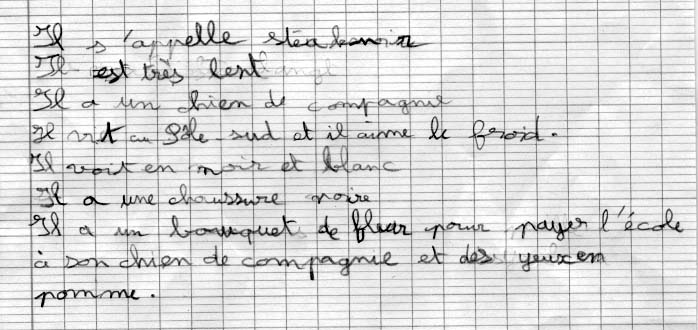 Il s'appelle
Il est très lent
Il a un chien de compagnie
Il vit au Pôle-sud et il aime le froid.
Il voit en noir et blanc
Il a une chaussure noire
Il a un bouquet de fleur pour payer l'école
à son chien de compagnie et des yeux en
pomme.